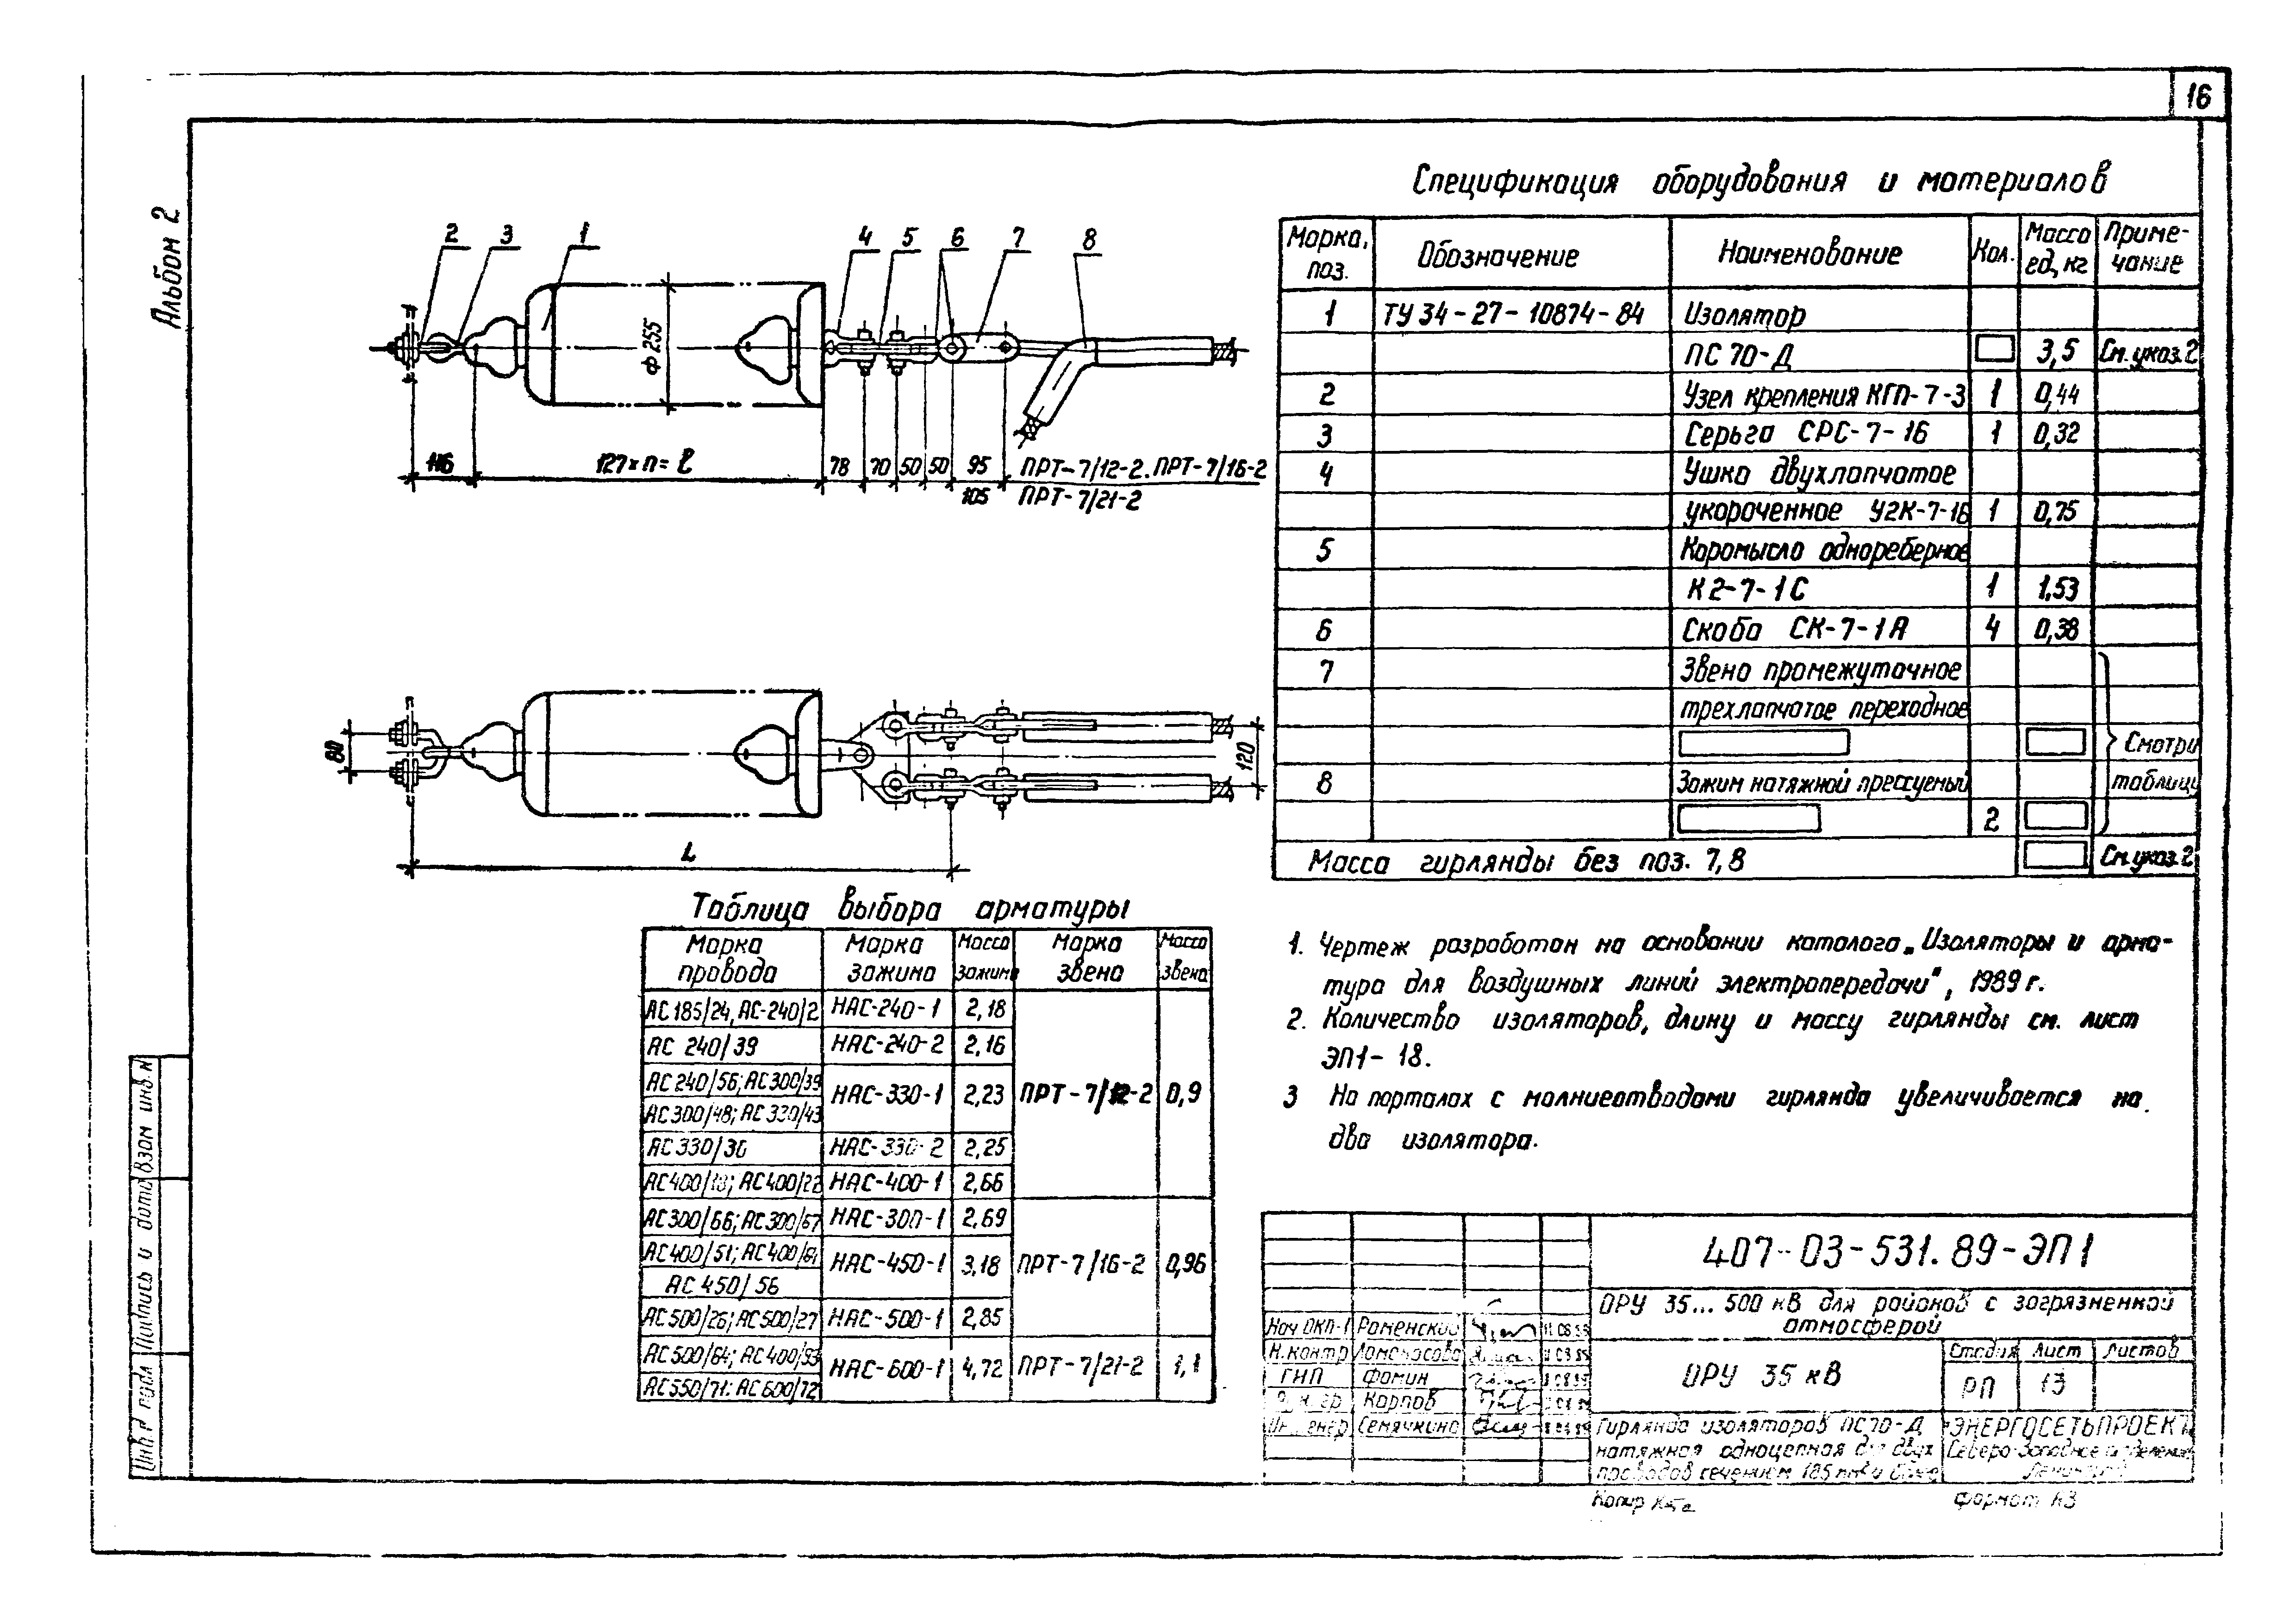 16
Альбом 2
Спецификация оборудования и материалов
Марка, поз. Обозначение Наименование Кол. Масса ед, кг Примечание
1 ТУ 34-27-10874-84 Изолятор
ПС 70-Д 3,5 См. указ. 2
2 Узел крепления КГП-7-3 1 0,44
3 Серьга СРС-7-16 1 0,32
4 Ушко двухлапчатое
укороченное У2К-7-16 1 0,75
5 Коромысло однореберное
К2-7-1С 1 1,53
6 Скоба СК-7-1А 4 0,38
7 Звено промежуточное
трехлапчатое переходное
Смотри
8 Зажим натяжной прессуемый таблицу
2
Масса гирлянды без поз. 7,8 См. указ. 2
2 3 1 4 5 6 7 8
ф 255
116 127×n=ℓ 78 70 50 50 95 ПРТ-7/12-2. ПРТ-7/16-2
105 ПРТ-7/21-2
80
120
L
Таблица выбора арматуры
Марка провода Марка зажима Масса зажима Марка звена Масса звена
АС185/24, АС-240/2 НАС-240-1 2,18
АС 240/39 НАС-240-2 2,16
АС240/56; АС300/39
НАС-330-1 2,23 ПРТ-7/12-2 0,9
АС300/48; АС330/43
АС330/30 НАС-330-2 2,25
АС400/18; АС400/22 НАС-400-1 2,66
АС300/66; АС300/67 НАС-300-1 2,69
АС400/51; АС400/64
НАС-450-1 3,18 ПРТ-7/16-2 0,96
АС 450/56
АС500/26; АС500/27 НАС-500-1 2,85
АС500/64; АС400/93
НАС-600-1 4,72 ПРТ-7/21-2 1,1
АС550/71; АС600/72
1. Чертеж разработан на основании каталога „Изоляторы и арма-
тура для воздушных линий электропередачи", 1989 г.
2. Количество изоляторов, длину и массу гирлянды см. лист
ЭП1-18.
3 На порталах с молниеотводами гирлянда увеличивается на
два изолятора.
407-03-531.89-ЭП1
ОРУ 35... 500 кВ для районов с загрязненной
атмосферой
Нач ОКП-1 Роменский
Н.контр Ломоносова
ГНП Фомин
Карпов
Семячкина
ОРУ 35 кВ
Стадия Лист Листов
РП 13
Гирлянда изоляторов ПС70-Д
натяжная одноцепная для двух
проводов сечением 185 мм² и более
"ЭНЕРГОСЕТЬПРОЕКТ"
Северо-Западное отделение
Ленинград
Копир
Формат А3
Взам инв. №
Подпись и дата
Инв № подл